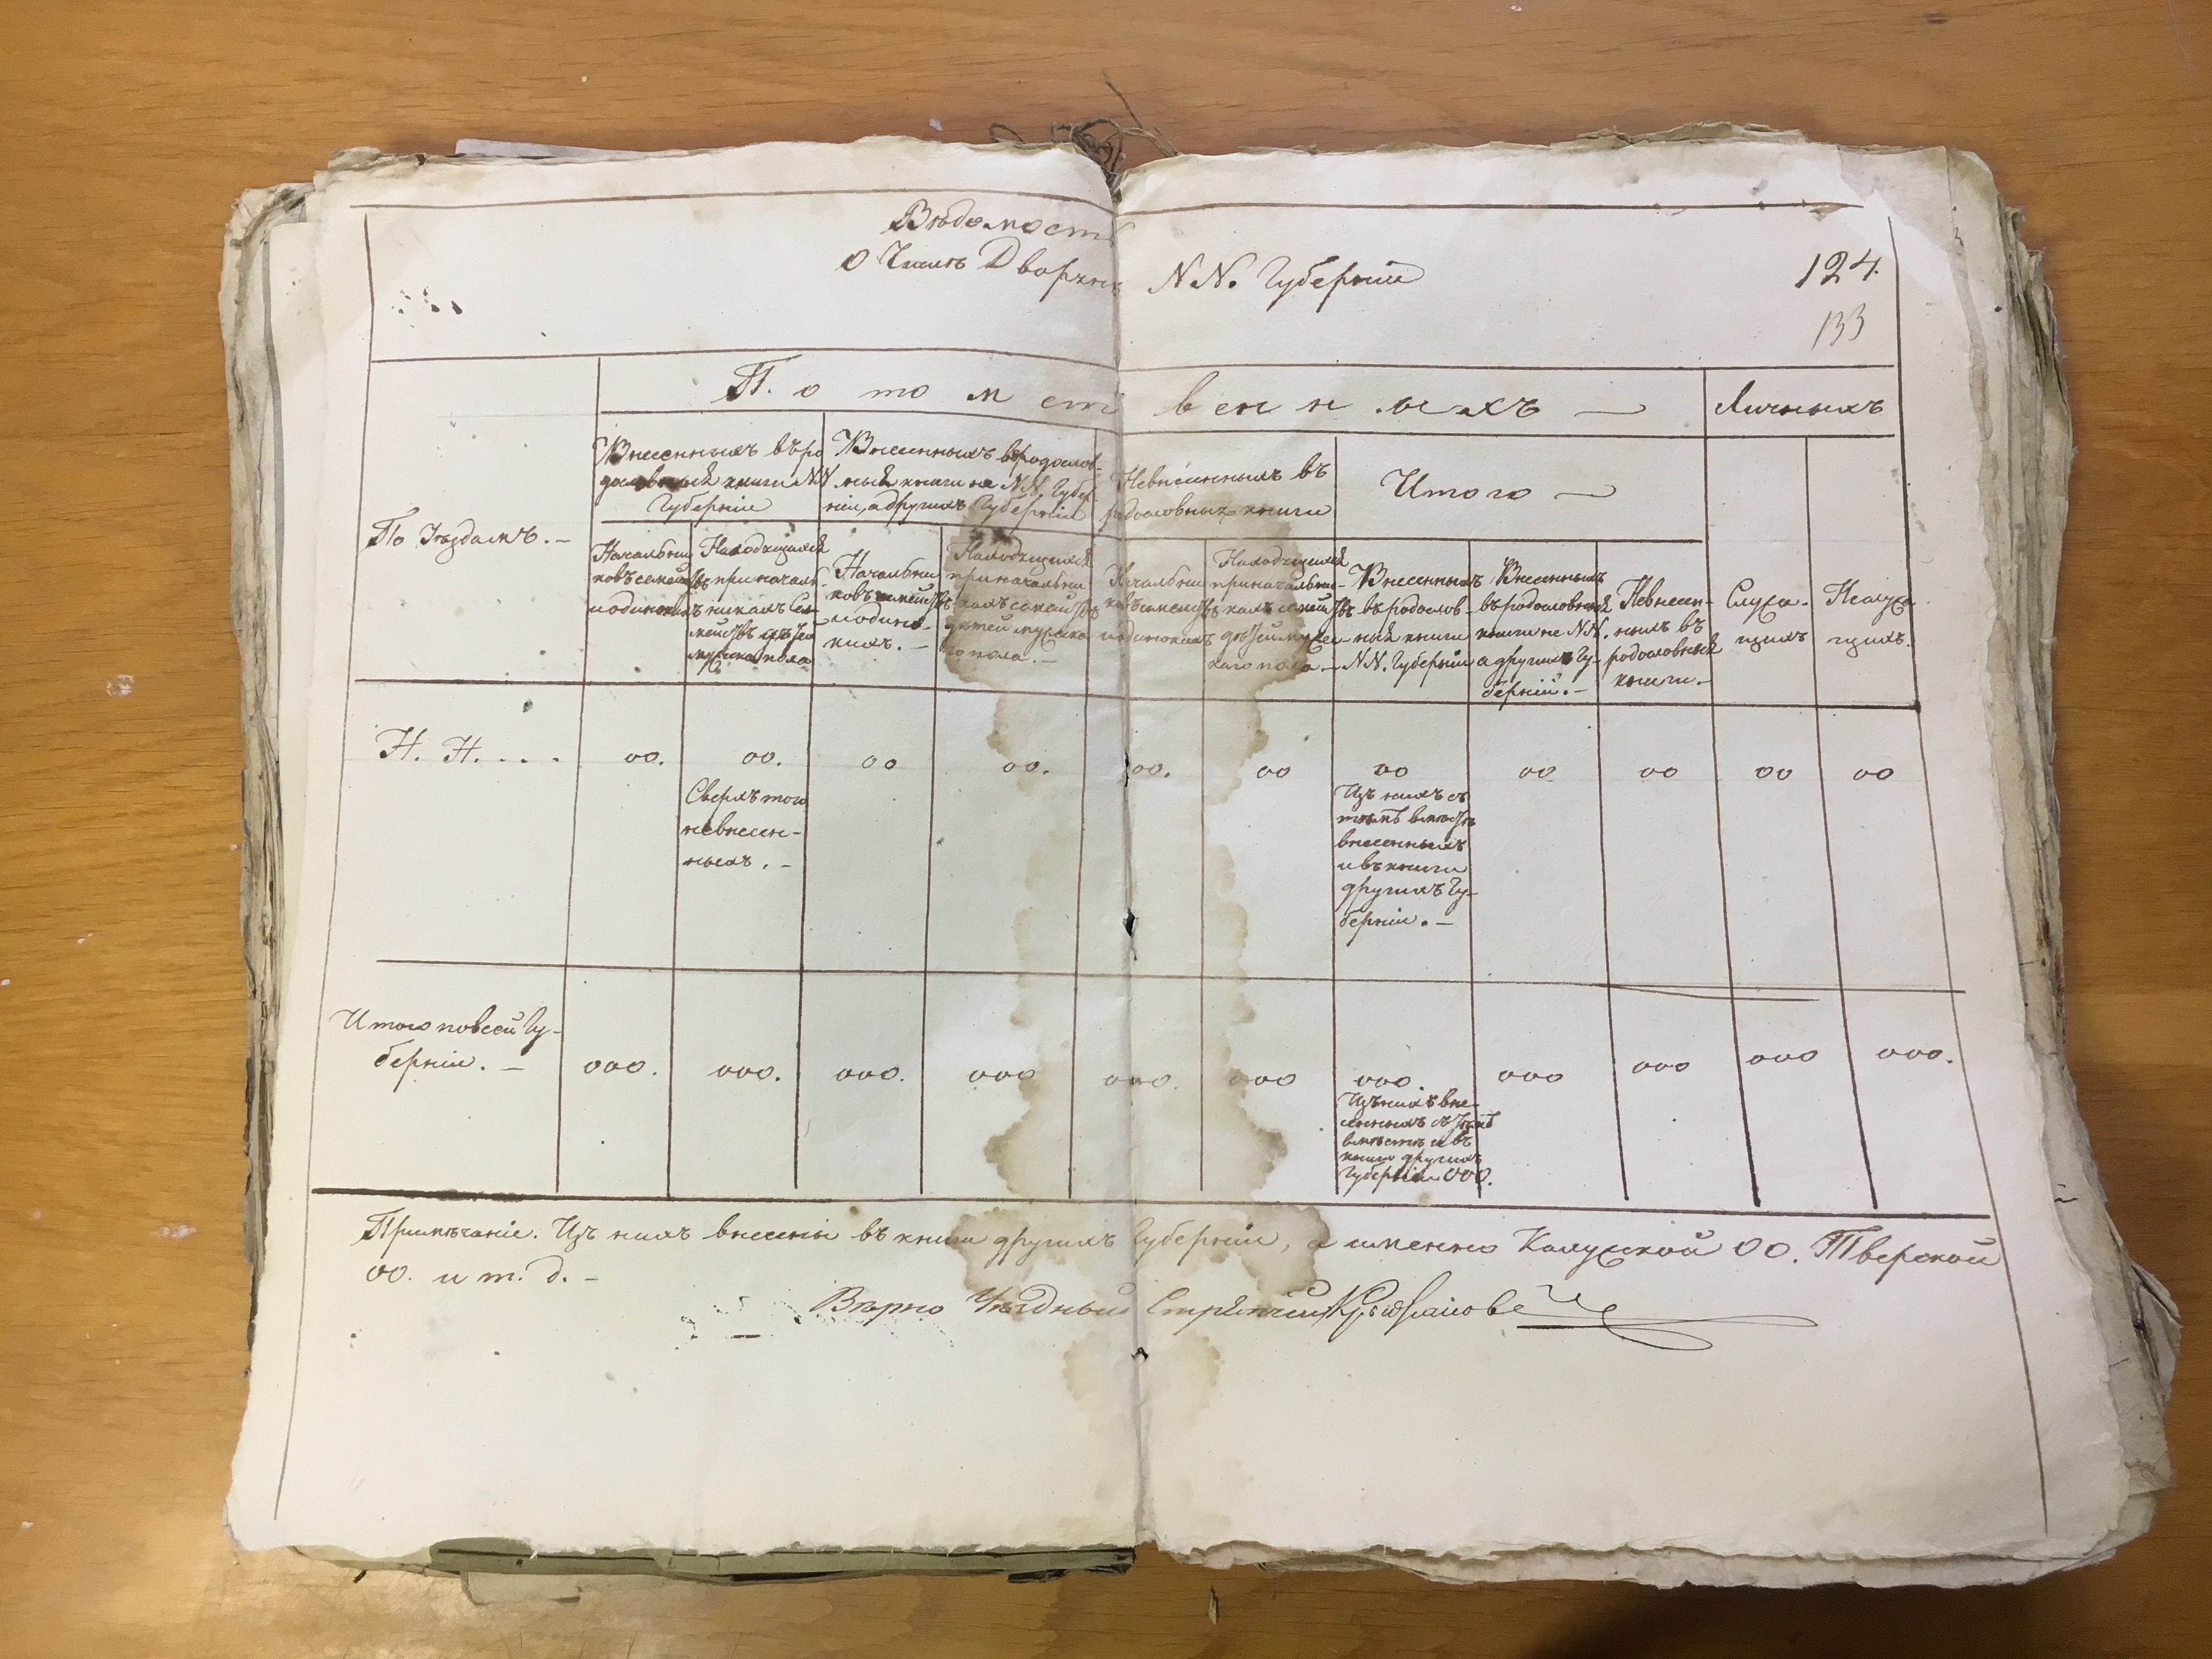 Вѣдомость
О Числѣ Дворянъ NN. Губерніи
124.
133
Потомственныхъ —
Личныхъ
По Уѣздамъ. —
Внесенныхъ въ ро
дословныя книги NN
Губерніи
Внесенныхъ въ родослов-
ныя книги не NN. Губер
ніи, а другихъ Губерній
Невнесенныхъ въ
родословныя книги
Итого —
Начальни
ковъ семействъ
и одинокихъ
Находящихся
при началь-
никахъ Се-
мействъ дѣтей
мужска пола
Начальни
ковъ семействъ
и одино-
кихъ. —
Находящихся
при начальни
кахъ семействъ
дѣтей мужска
го пола. —
Начальни
ковъ семействъ
и одинокихъ
Находящихся
при начальни-
кахъ семействъ
дѣтей мужес-
каго пола —
Внесенныхъ
въ родослов-
ныя книги
NN. Губерніи
Внесенныхъ
въ родословныя
книги не NN.
а другихъ Гу-
берній. —
Невнесен-
ныхъ въ
родословныя
книги. —
Служа-
щихъ
Неслужа-
щихъ.
Н. Н. . . . 00. 00. 00 00. 00. 00 00 00 00 00 00
Сверхъ того
невнесен-
ныхъ. —
Изъ нихъ съ
тѣмъ вмѣстѣ
внесенныхъ
и въ книги
другихъ Гу-
берній. —
Итого по всей Гу-
берніи. — 000. 000. 000. 000 000. 000 000. 000 000 000 000.
Изъ нихъ вне-
сенныхъ съ тѣмъ
вмѣстѣ и въ
книги другихъ
Губерній 000.
Примѣчаніе. Изъ нихъ внесены въ книги другихъ Губерній, а именно Калужской 00. Тверской
00. и т. д. —
Вѣрно Уѣздный Стряпчій